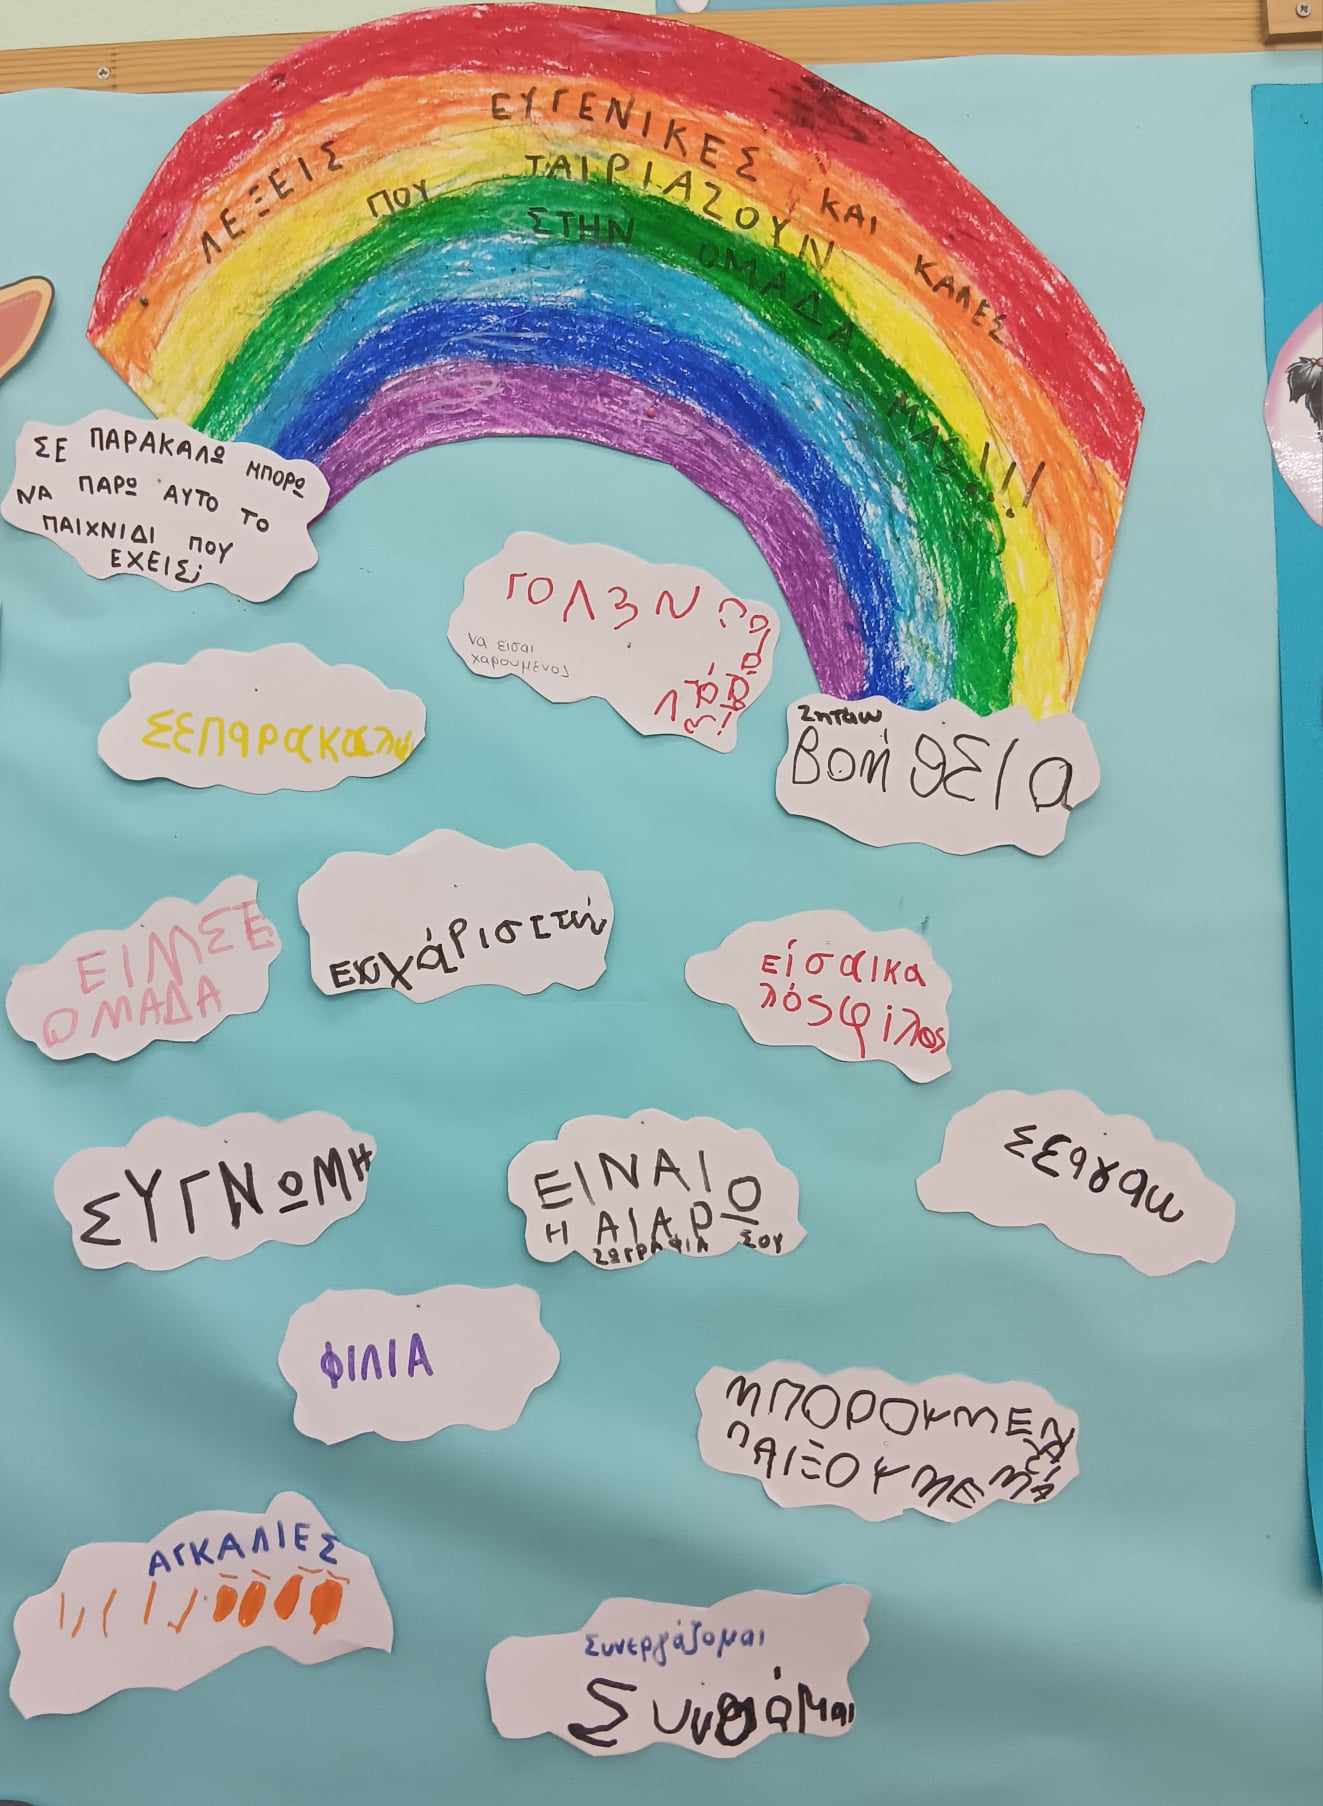 ΛΕΞΕΙΣ ΕΥΓΕΝΙΚΕΣ ΚΑΙ ΚΑΛΕΣ
ΠΟΥ ΤΑΙΡΙΑΖΟΥΝ
ΣΤΗΝ ΟΜΑΔΑ ΜΑΣ!!!
ΣΕ ΠΑΡΑΚΑΛΩ ΜΠΟΡΩ
ΝΑ ΠΑΡΩ ΑΥΤΟ ΤΟ
ΠΑΙΧΝΙΔΙ ΠΟΥ
ΕΧΕΙΣ;
να εισαι
χαρουμενος
ΣΕΠαρακαλω
Ζητάω
βοήθεια
ΕΙΜΣΕ
ΟΜΑΔΑ
είσαικα
λόςφίλος
ΣΥΓΝΩΜΗ
ΕΙΝΑΙΟ
ΖΩΓΡΑΦΙΑ ΣΟΥ
ΣΕαγαω
ΦΙΛΙΑ
ΜΠΟΡΟΥΜΕΝ
ΠΑΙΞΟΥΜΕΜ
ΑΓΚΑΛΙΕΣ
Συνεργάζομαι